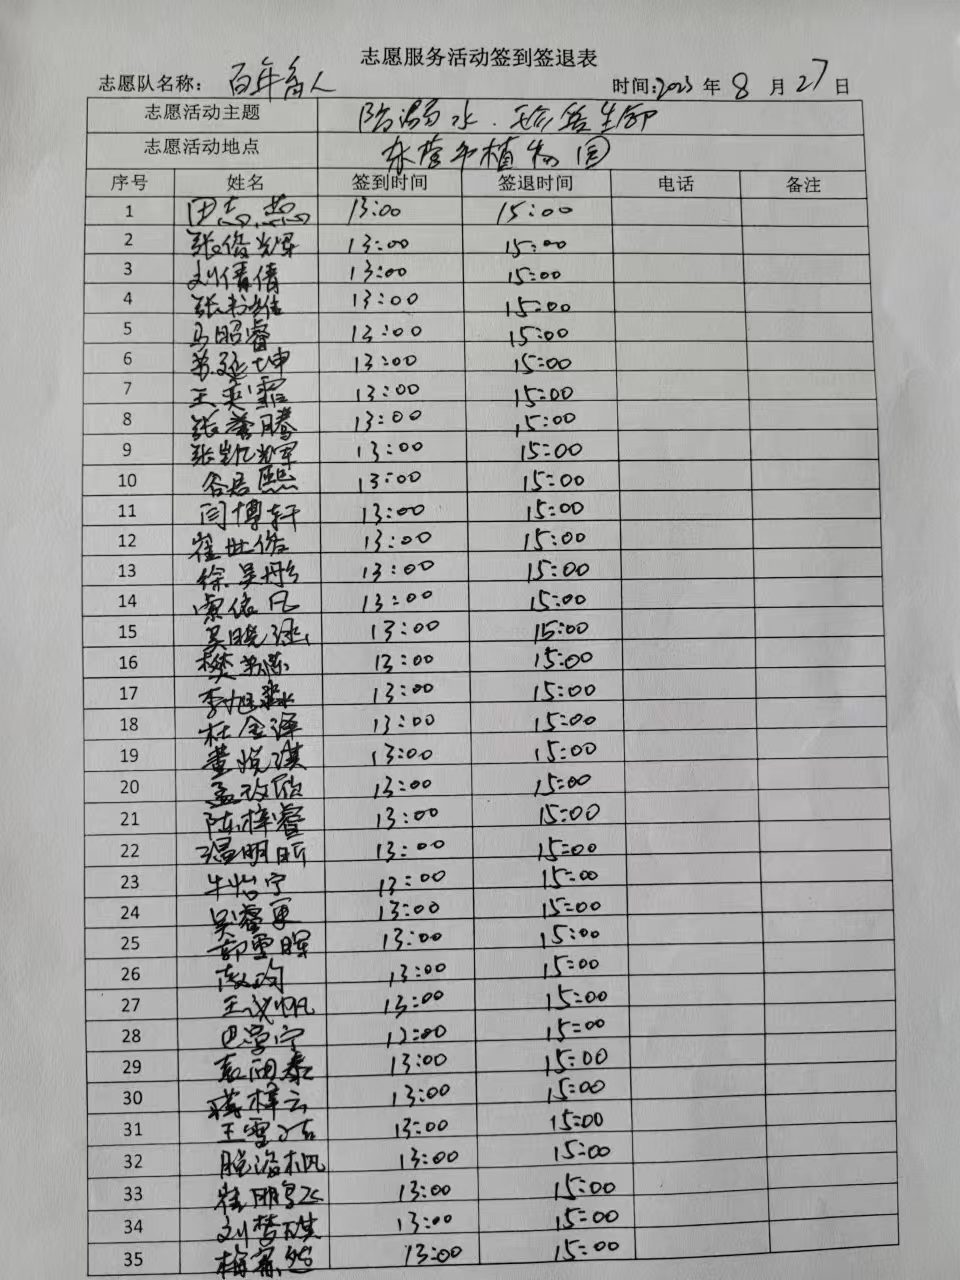 志愿服务活动签到签退表
志愿队名称： 百年 人 时间:2023 年 8 月 27 日
志愿活动主题 防溺水.珍爱生命
志愿活动地点 东营市植物园
序号 姓名 签到时间 签退时间 电话 备注
1 田志燕 13:00 15:00
2 张俊辉 13:00 15:00
3 刘倩倩 13:00 15:00
4 张 维 13:00 15:00
5 马昭睿 13:00 15:00
6 苏延坤 13:00 15:00
7 王奕霏 13:00 15:00
8 张誉腾 13:00 15:00
9 张凯军 13:00 15:00
10 谷君熙 13:00 15:00
11 闫博轩 13:00 15:00
12 崔世浩 13:00 15:00
13 徐昊彤 13:00 15:00
14 依凡 13:00 15:00
15 吴晓 13:00 15:00
16 樊 13:00 15:00
17 李旭 13:00 15:00
18 杜金泽 13:00 15:00
19 董悦琪 13:00 15:00
20 孟欣 13:00 15:00
21 陈梓睿 13:00 15:00
22 温明昕 13:00 15:00
23 牛怡宁 13:00 15:00
24 吴睿 13:00 15:00
25 郭雪晖 13:00 15:00
26 13:00 15:00
27 王帆 13:00 15:00
28 巴学宁 12:00 15:00
29 袁雨泰 13:00 15:00
30 蒋梓云 13:00 15:00
31 王雪 13:00 15:00
32 帆 13:00 15:00
33 崔鹏 13:00 15:00
34 刘梦琪 13:00 15:00
35 梅 然 13:00 15:00